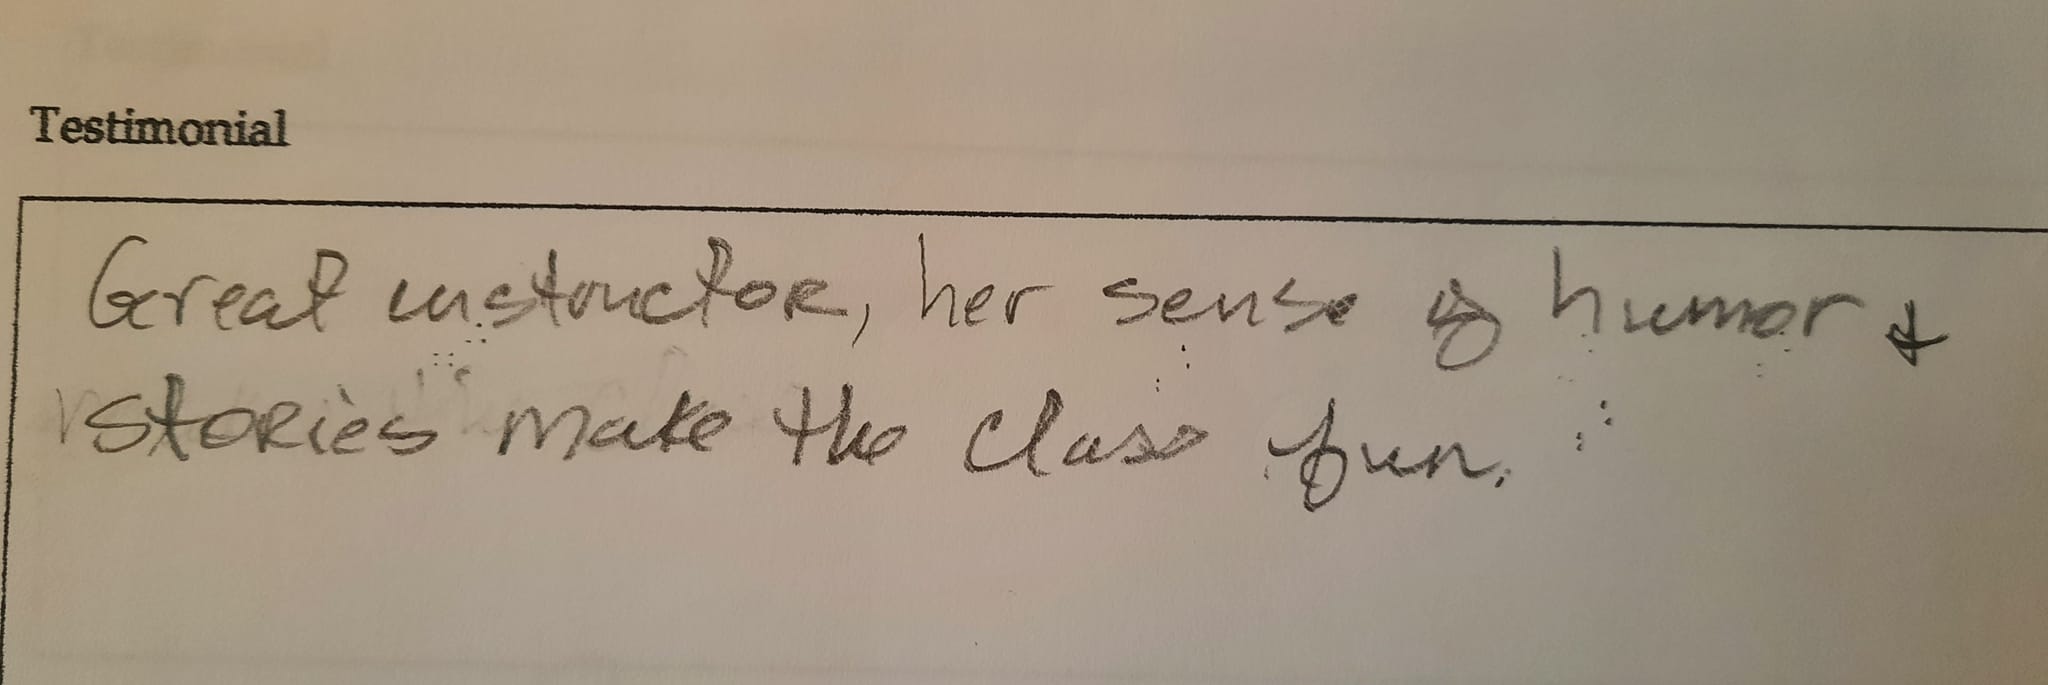 Testimonial
Great instructor, her sense of humor &
stories make the class fun.